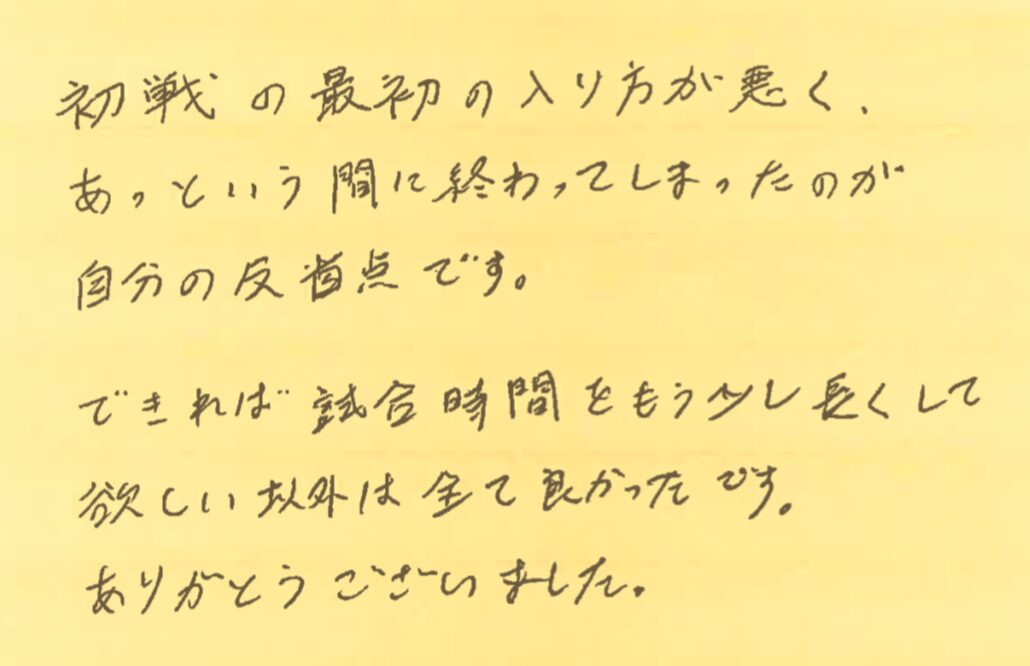 初戦の最初の入り方が悪く、
あっという間に終わってしまったのが
自分の反省点です。
できれば試合時間をもう少し長くして
欲しい以外は全て良かったです。
ありがとうございました。